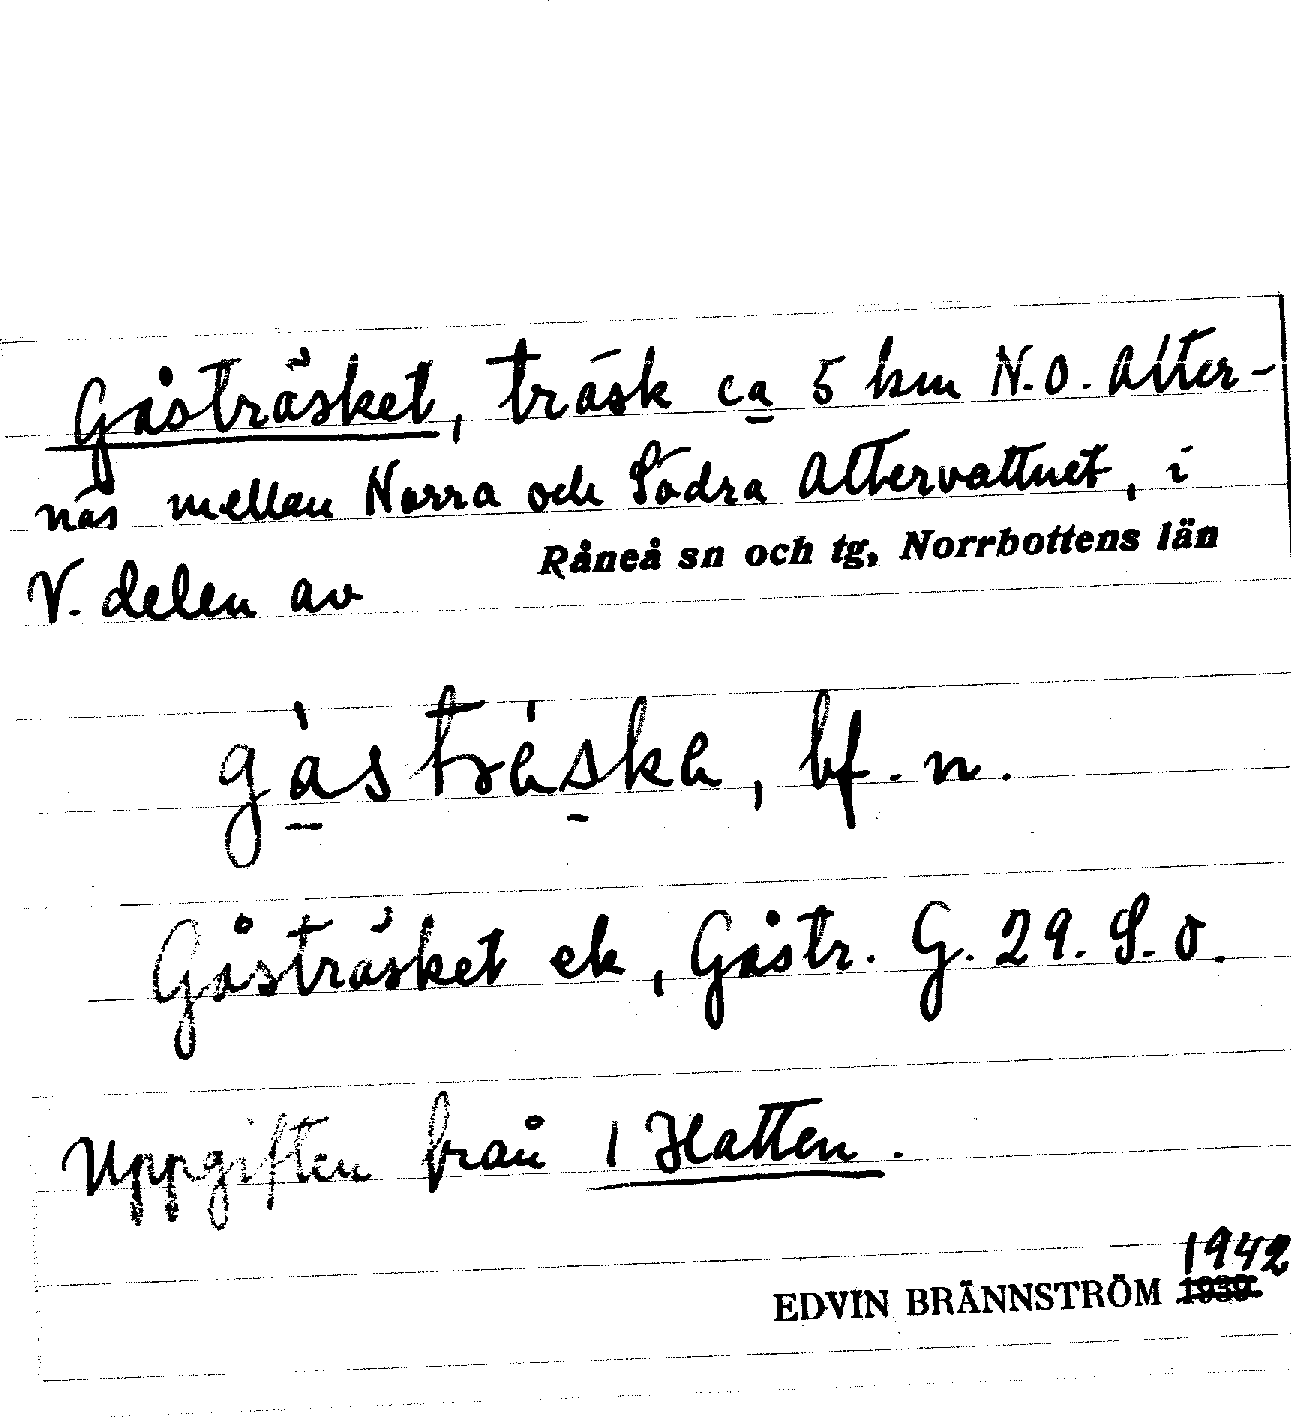 Gåsträsket, träsk ca 5 km N.O. Alter-
näs mellan Norra och Södra Altervattnet, i
V. delen av Råneå sn och tg, Norrbottens län
gàstràska, bf. n.
Gåsträsket ek, Gåstr. G. 29. S.O.
Uppgiften från 1 Hatten.
1942
EDVIN BRÄNNSTRÖM 1939.